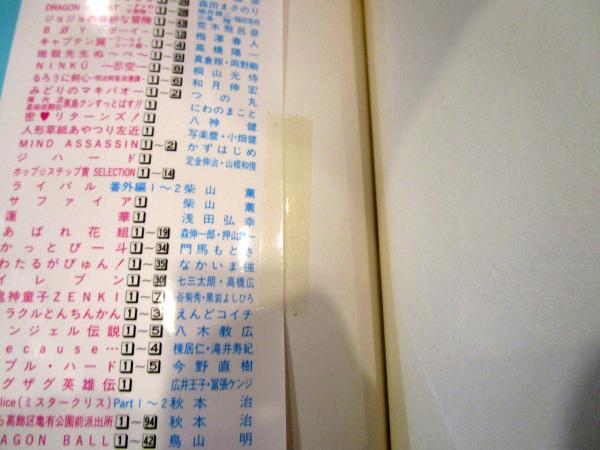 DRAGON
森田まさのり
ジョジョの奇妙な冒険 荒木飛呂彦
BØYーボーイー 梅澤春人
キャプテン翼 ーワールドユース編ー 高橋陽一
地獄先生ぬ〜べ〜 1〜8 真倉翔・岡野剛
NINKŪ ー忍空ー 1〜6 桐山光侍
るろうに剣心ー明治剣客浪漫譚ー 1〜6 和月伸宏
みどりのマキバオー 1〜2 つの丸
陣内流柔術武闘伝 真島クンすっとばす!! 1 にわのまこと
密♥リターンズ! 1 八神健
人形草紙あやつり左近 1 写楽麿・小畑健
MIND ASSASSIN 1〜2 かずはじめ
ジハード 1 定金伸治・山根和俊
ホップ☆ステップ賞 SELECTION 1〜14
ライバル 番外編1〜2 柴山薫
サファイア 1 柴山薫
蓮華 1 浅田弘幸
あばれ花組 1〜19 森伸一郎・押山
かっとび一斗 1〜34 門馬もとき
わたるがぴゅん! 1〜35 なかいま強
イレブン 1〜30 七三太朗・高橋広
鬼神童子ZENKI 1〜7 谷菊秀・黒岩よしひろ
ラクルとんちんかん 1〜3 えんどコイチ
ンジェル伝説 1〜5 八木教広
ecause… 1〜4 棟居仁・滝井寿紀
ブル・ハード 1〜5 今野直樹
グザグ英雄伝 1 広井王子・冨張ケンジ
lice(ミスタークリス) Part 1〜2 秋本治
ら葛飾区亀有公園前派出所 1〜94 秋本治
RAGON BALL 1〜42 鳥山明